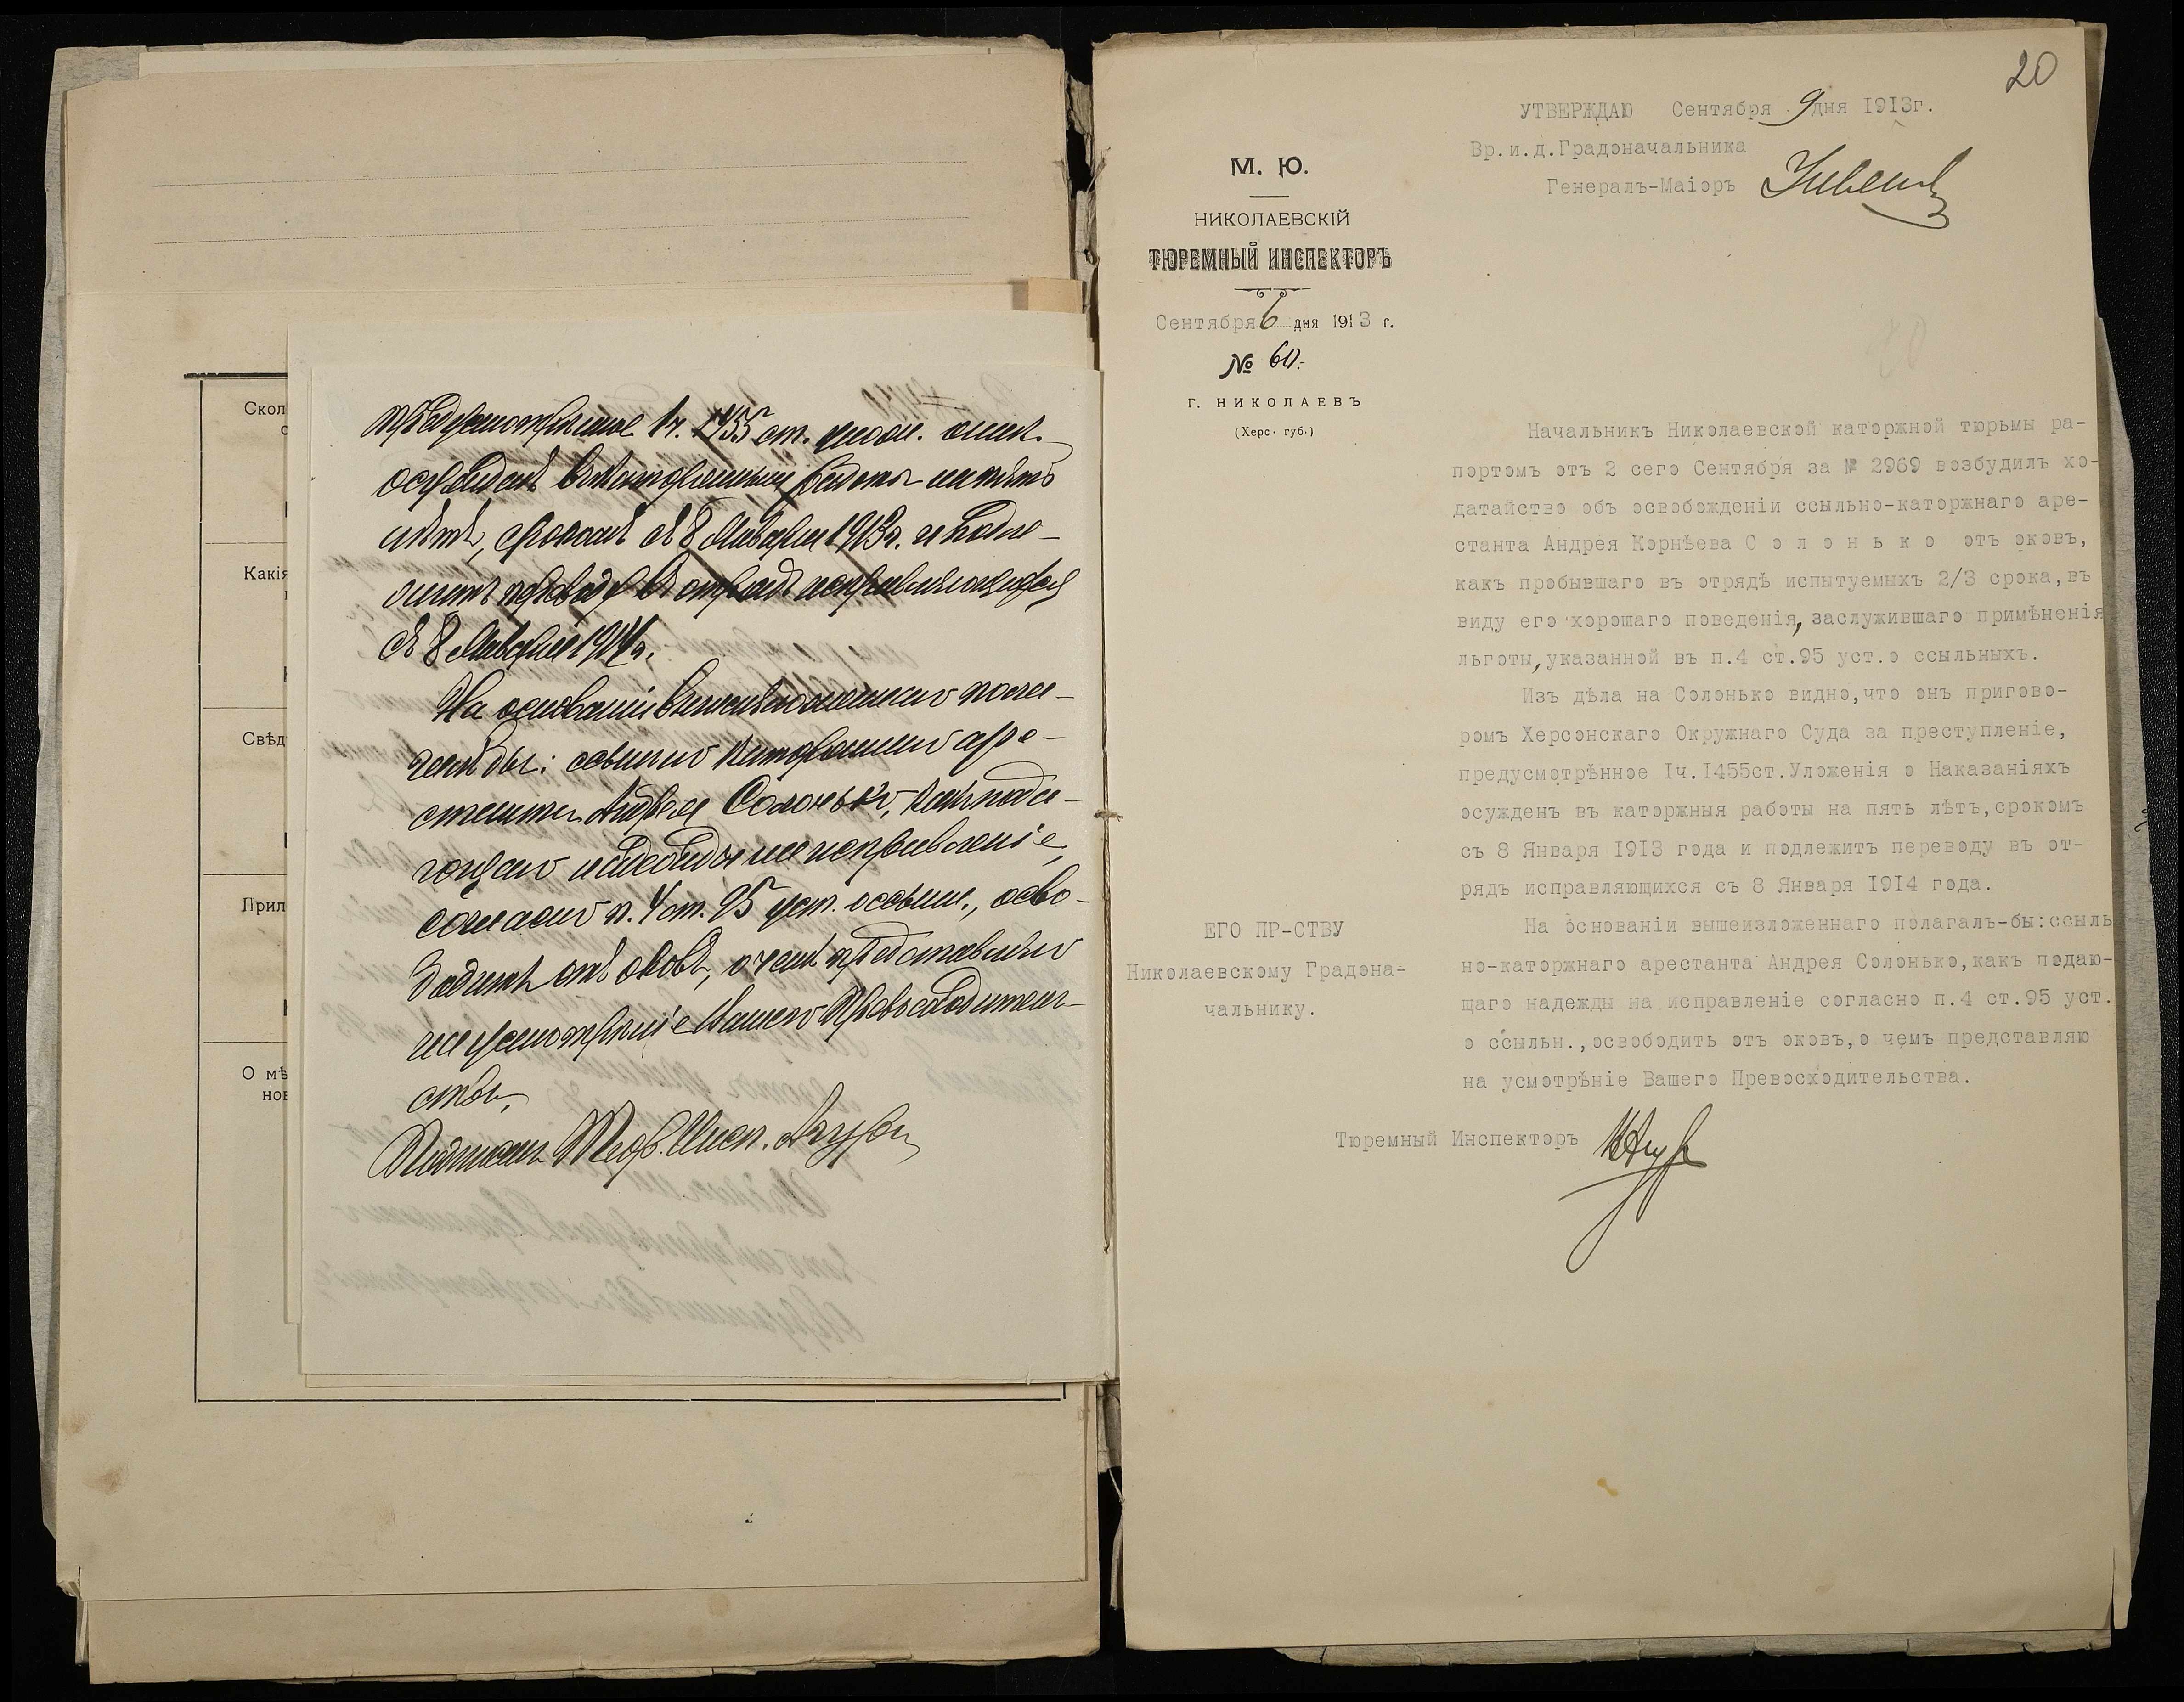 Скол
с
Какія
Свѣд
Прил
О мѣ
нов
предусмотрѣнное 1 ч. 1455 ст. улож. о нак.
осужденъ въ каторжныя работы на пять
лѣтъ, срокомъ съ 8 Января 1913 г. и подле-
житъ переводу въ отрядъ исправляющихся
съ 8 Января 1914 г.
На основаніи вышеизложеннаго пола-
галъ бы: ссыльно каторжнаго аре-
станта Андрея Солонько, какъ пода-
ющаго надежды на исправленіе,
согласно п. 4 ст. 95 уст. о ссыльн., осво-
бодить отъ оковъ, о чемъ представляю
на усмотрѣніе Вашего Превосходитель-
ства.
Подписалъ Тюр. Инсп.
20
УТВЕРЖДАЮ Сентября 9 дня 1913г.
Вр.и.д.Градоначальника
Генералъ-Маіоръ
М. Ю.
НИКОЛАЕВСКІЙ
ТЮРЕМНЫЙ ИНСПЕКТОРЪ
Сентября 6 дня 1913 г.
№ 60.
Г. НИКОЛАЕВЪ
(Херс. губ.)
Начальникъ Николаевской каторжной тюрьмы ра-
портомъ отъ 2 сего Сентября за № 2969 возбудилъ хо-
датайство объ освобожденіи ссыльно-каторжнаго аре-
станта Андрея Корнѣева С о л о н ь к о отъ оковъ,
какъ пробывшаго въ отрядѣ испытуемыхъ 2/3 срока,въ
виду его хорошаго поведенія, заслужившаго примѣненія
льготы,указанной въ п.4 ст.95 уст.о ссыльныхъ.
Изъ дѣла на Солонько видно,что онъ пригово-
ромъ Херсонскаго Окружнаго Суда за преступленіе,
предусмотрѣнное 1ч.1455ст.Уложенія о Наказаніяхъ
осужденъ въ каторжныя работы на пять лѣтъ,срокомъ
съ 8 Января 1913 года и подлежитъ переводу въ от-
рядъ исправляющихся съ 8 Января 1914 года.
На основаніи вышеизложеннаго полагалъ-бы:ссыль
но-каторжнаго арестанта Андрея Солонько,какъ подаю-
щаго надежды на исправленіе согласно п.4 ст.95 уст.
о ссыльн.,освободить отъ оковъ,о чемъ представляю
на усмотрѣніе Вашего Превосходительства.
ЕГО ПР-СТВУ
Николаевскому Градона=
чальнику.
Тюремный Инспекторъ